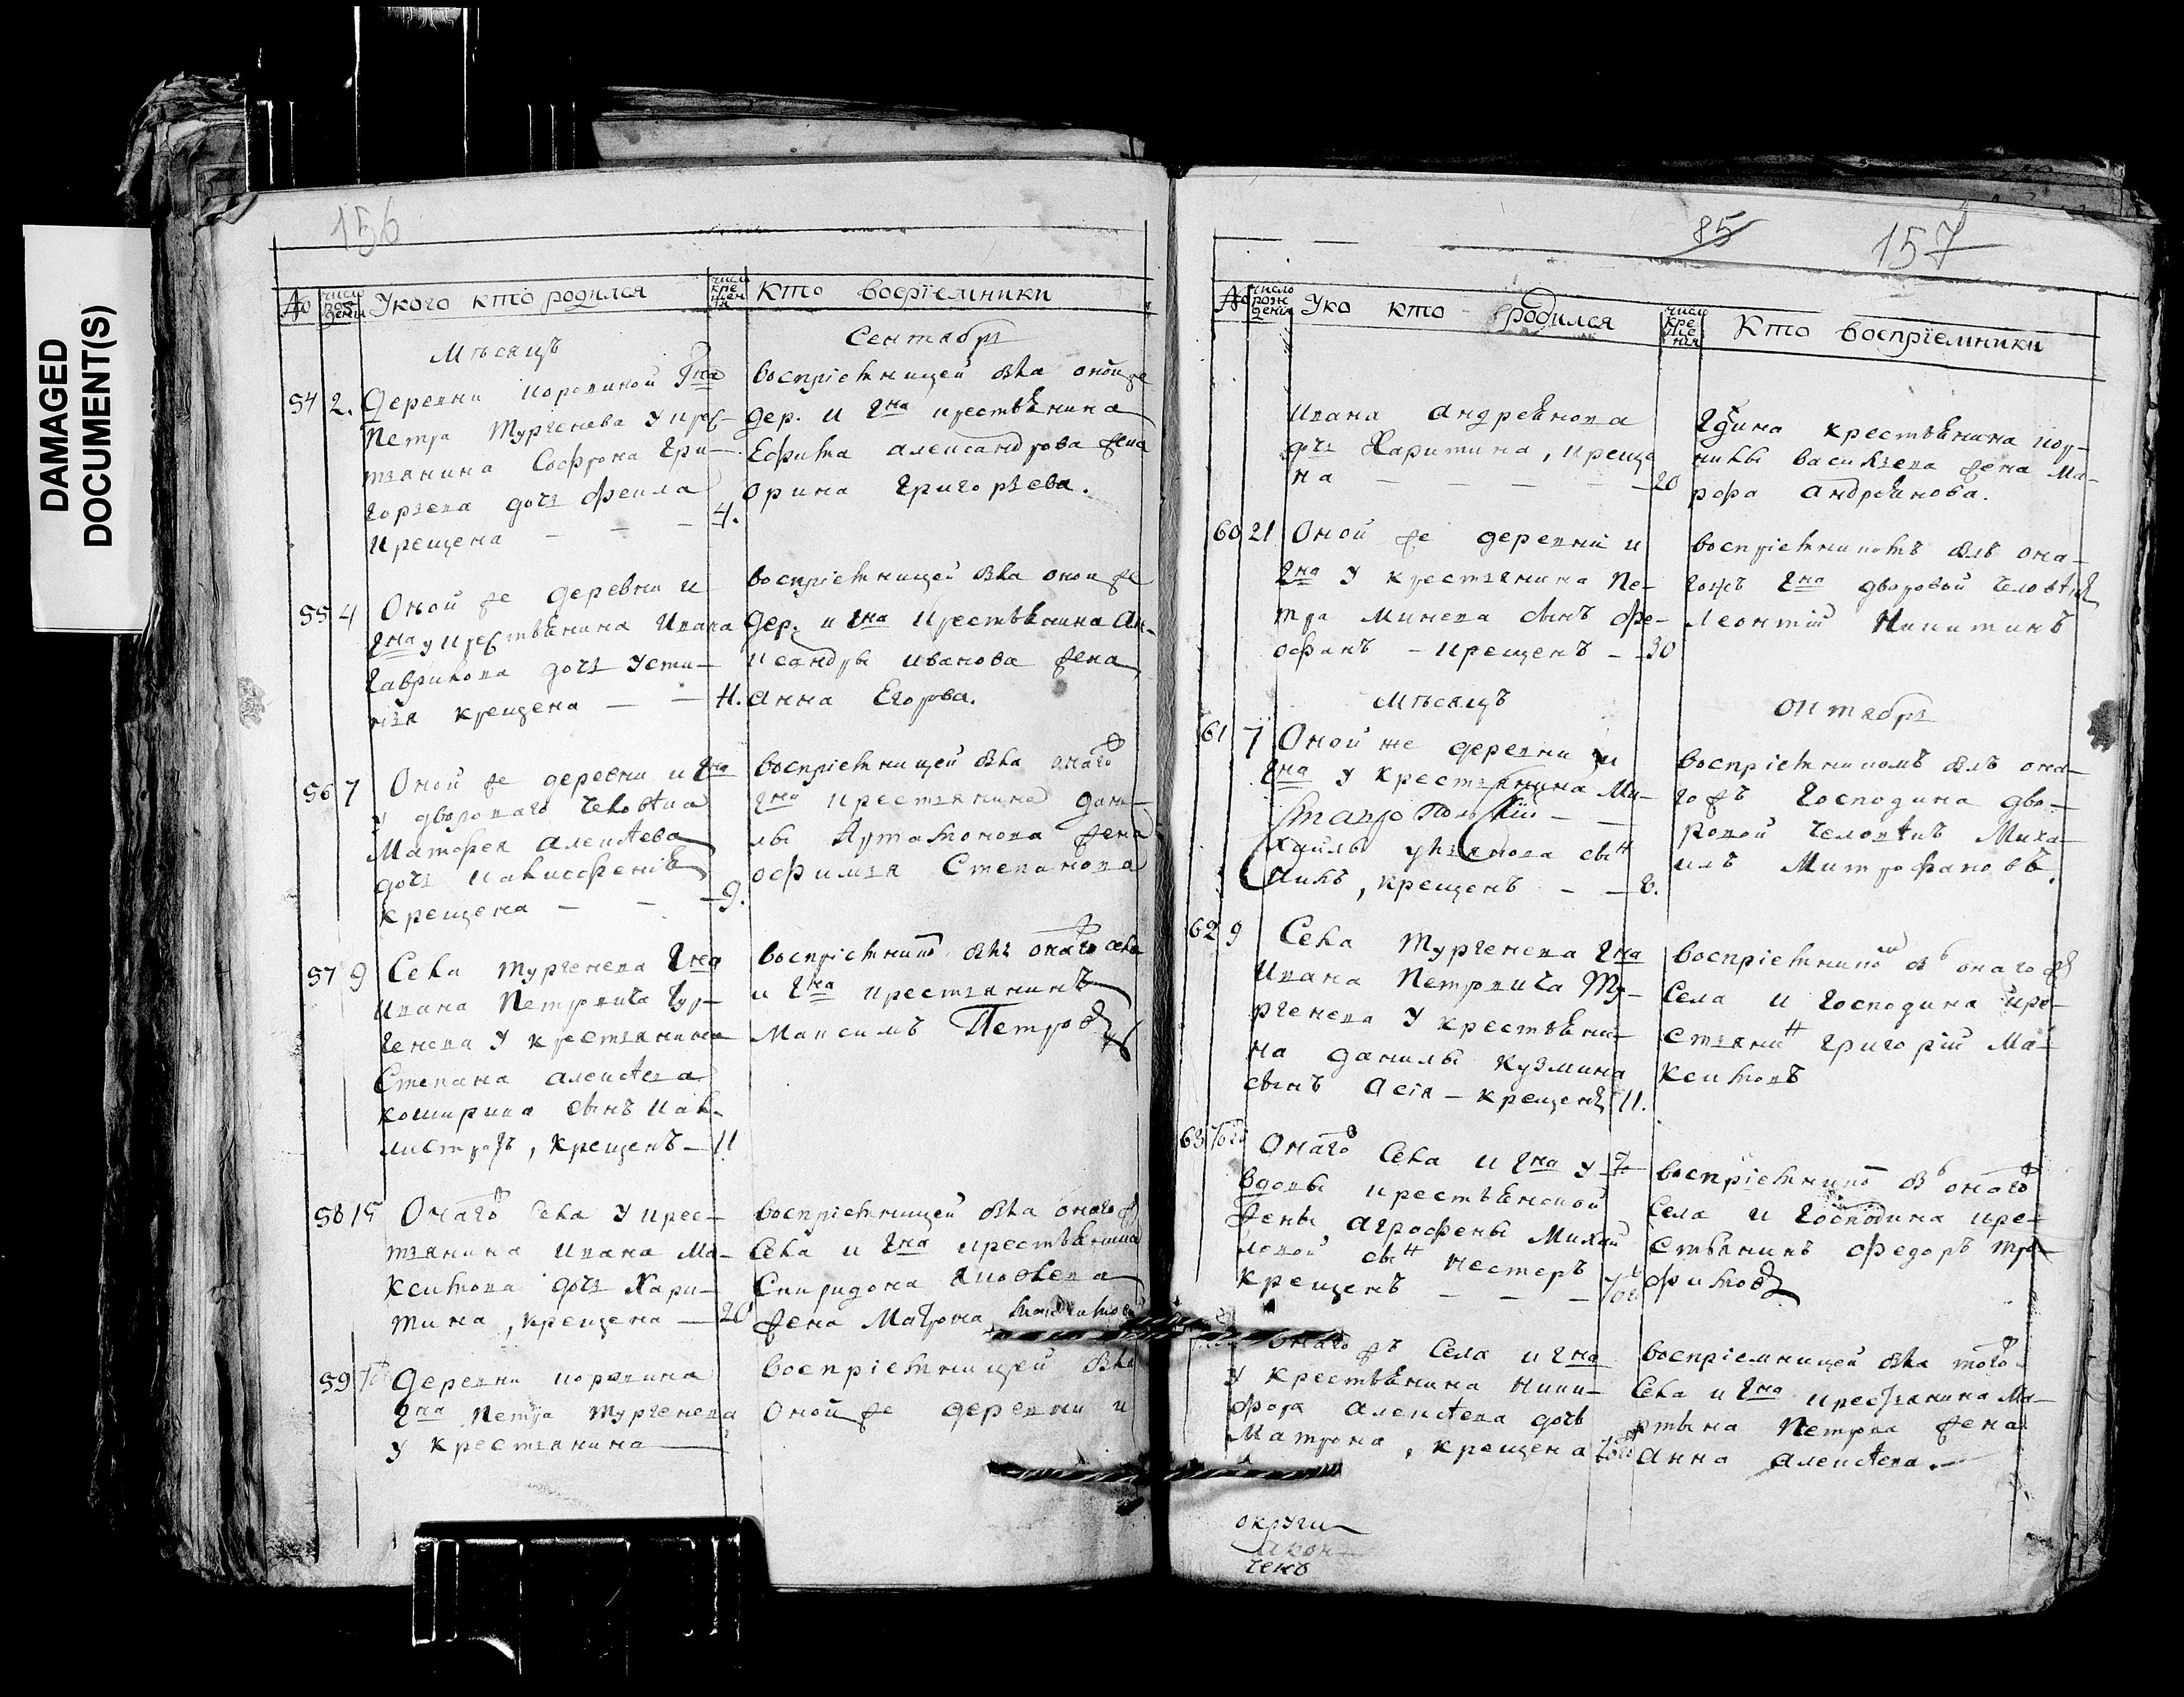 DAMAGED
DOCUMENT(S)
156
№ число рождения У кого кто родился число крещения Кто воспрiемники
Мѣсяцъ Сентябрь
54 2. Деревни Коровиной Гна
Петра Тургенева у крес-
тьянина Софрона Гри-
горьева дочь Фекла
крещена — — — 4.
воспрiемницей была оной же
дер. и Гна крестьянина
Ефима Александрова жена
Орина Григорьева.
55 4 Оной же деревни и
Гна у крестьянина Ивана
Гаврилова дочь Усти-
нiя крещена — — 4.
воспрiемницей была оной же
дер. и Гна крестьянина
Ивановa жена
Анна Егорова.
56 7 Оной же деревни и Гна
у двороваго человѣка
Матфея Алексѣева
дочь
крещена — — — 9.
воспрiемницей была онаго
Гна крестьянина Дани-
лы Артамонова жена
Офимья Степанова
57 9 Села Тургенева Гна
Ивана Петровича Тур-
генева у крестьянина
Степана Алексѣева
Коширина сынъ Кал-
листратъ, крещенъ — 11
воспрiемнико былъ онаго села
и Гна крестьянинъ
Максимъ Петровъ
58 15 Онаго села у крес-
тьянина Ивана Ма-
ксимова дочь Хари-
тина, крещена — 20
воспрiемницей была онаго ж
села и Гна крестьянина
Спиридона Яковлева
жена Матрона
59 Деревни Коровина
Гна Петра Тургенева
у крестьянина
воспрiемницей была
оной же деревни и
85 157
№ число рождения У ко кто родился число крещения Кто воспрiемники
Ивана Андреянова
дочь Харитина, креще
на — — — — 20
Гдина крестьянина Кор-
нилы Васильева жена Ма-
рфа Андреянова.
60 21 Оной же деревни и
Гна у крестьянина Пе-
тра Минева сынъ Фе-
офанъ — крещенъ — 30
воспрiемникомъ былъ она-
гожъ Гна дворовой человѣкъ
Леонтiй Никитинъ
Мѣсяцъ Октябрь
61 7 Оной же деревни и
Гна у крестьянина Ми-
хайлы Ульянова сынъ
, крещенъ — — 8.
воспрiемникомъ былъ она-
го жъ Господина дво-
ровой человѣкъ Миха-
илъ Митрофановъ.
62 9 Села Тургенева Гна
Ивана Петровича Ту-
ргенева у крестьяни-
на Данилы Кузмина
сынъ Асiя — крещенъ 11.
воспрiемнико б онаго ж
села и Господина кре-
стьянинъ Григорiй Ма-
ксимовъ
63 Онаго села и Гна у
вдовы крестьянской
жены Агрофены Михай
ловой сынъ Нестеръ
крещенъ — — —
воспрiемнико б онаго
села и Господина кре-
стьянинъ Федоръ Тро-
фимовъ
Онаго жъ села и Гна
у крестьянина Ники-
фора Алексѣева дочь
Матрона, крещена
воспрiемницей была того
села и Гна крестьянина Ма-
ртына Петрова жена
Анна Алексѣева.
округи
чень